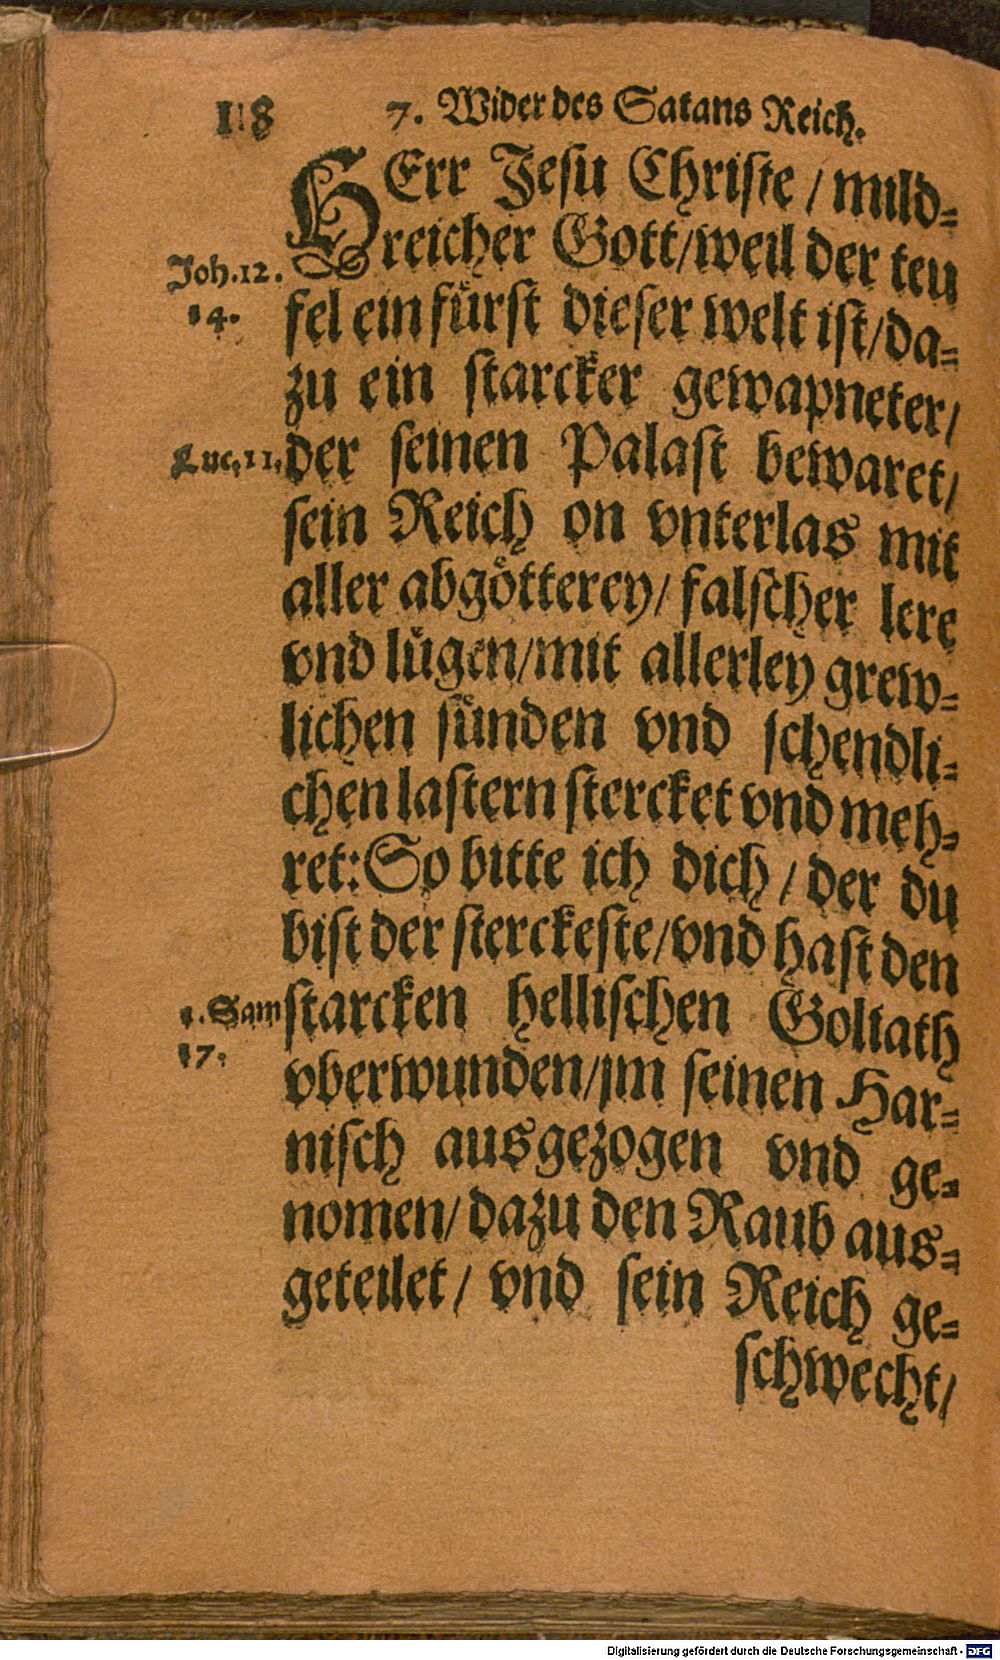 118 7. Wider des Satans Reich.
HErr Jesu Christe / mild=
reicher Gott/weil der teu
Joh.12.
14.
fel ein fürst dieser welt ist/da=
zu ein starcker gewapneter/
Luc.11.
der seinen Palast bewaret/
sein Reich on vnterlas mit
aller abgötterey/ falscher lere
vnd lügen/mit allerley grew=
lichen sünden vnd schendli=
chen lastern stercket vnd meh=
ret: So bitte ich dich / der du
bist der sterckeste/vnd hast den
1. Sam
17.
starcken hellischen Goliath
vberwunden/jm seinen Har=
nisch ausgezogen vnd ge=
nomen/ dazu den Raub aus=
geteilet/ vnd sein Reich ge=
schwecht/
Digitalisierung gefördert durch die Deutsche Forschungsgemeinschaft - DFG